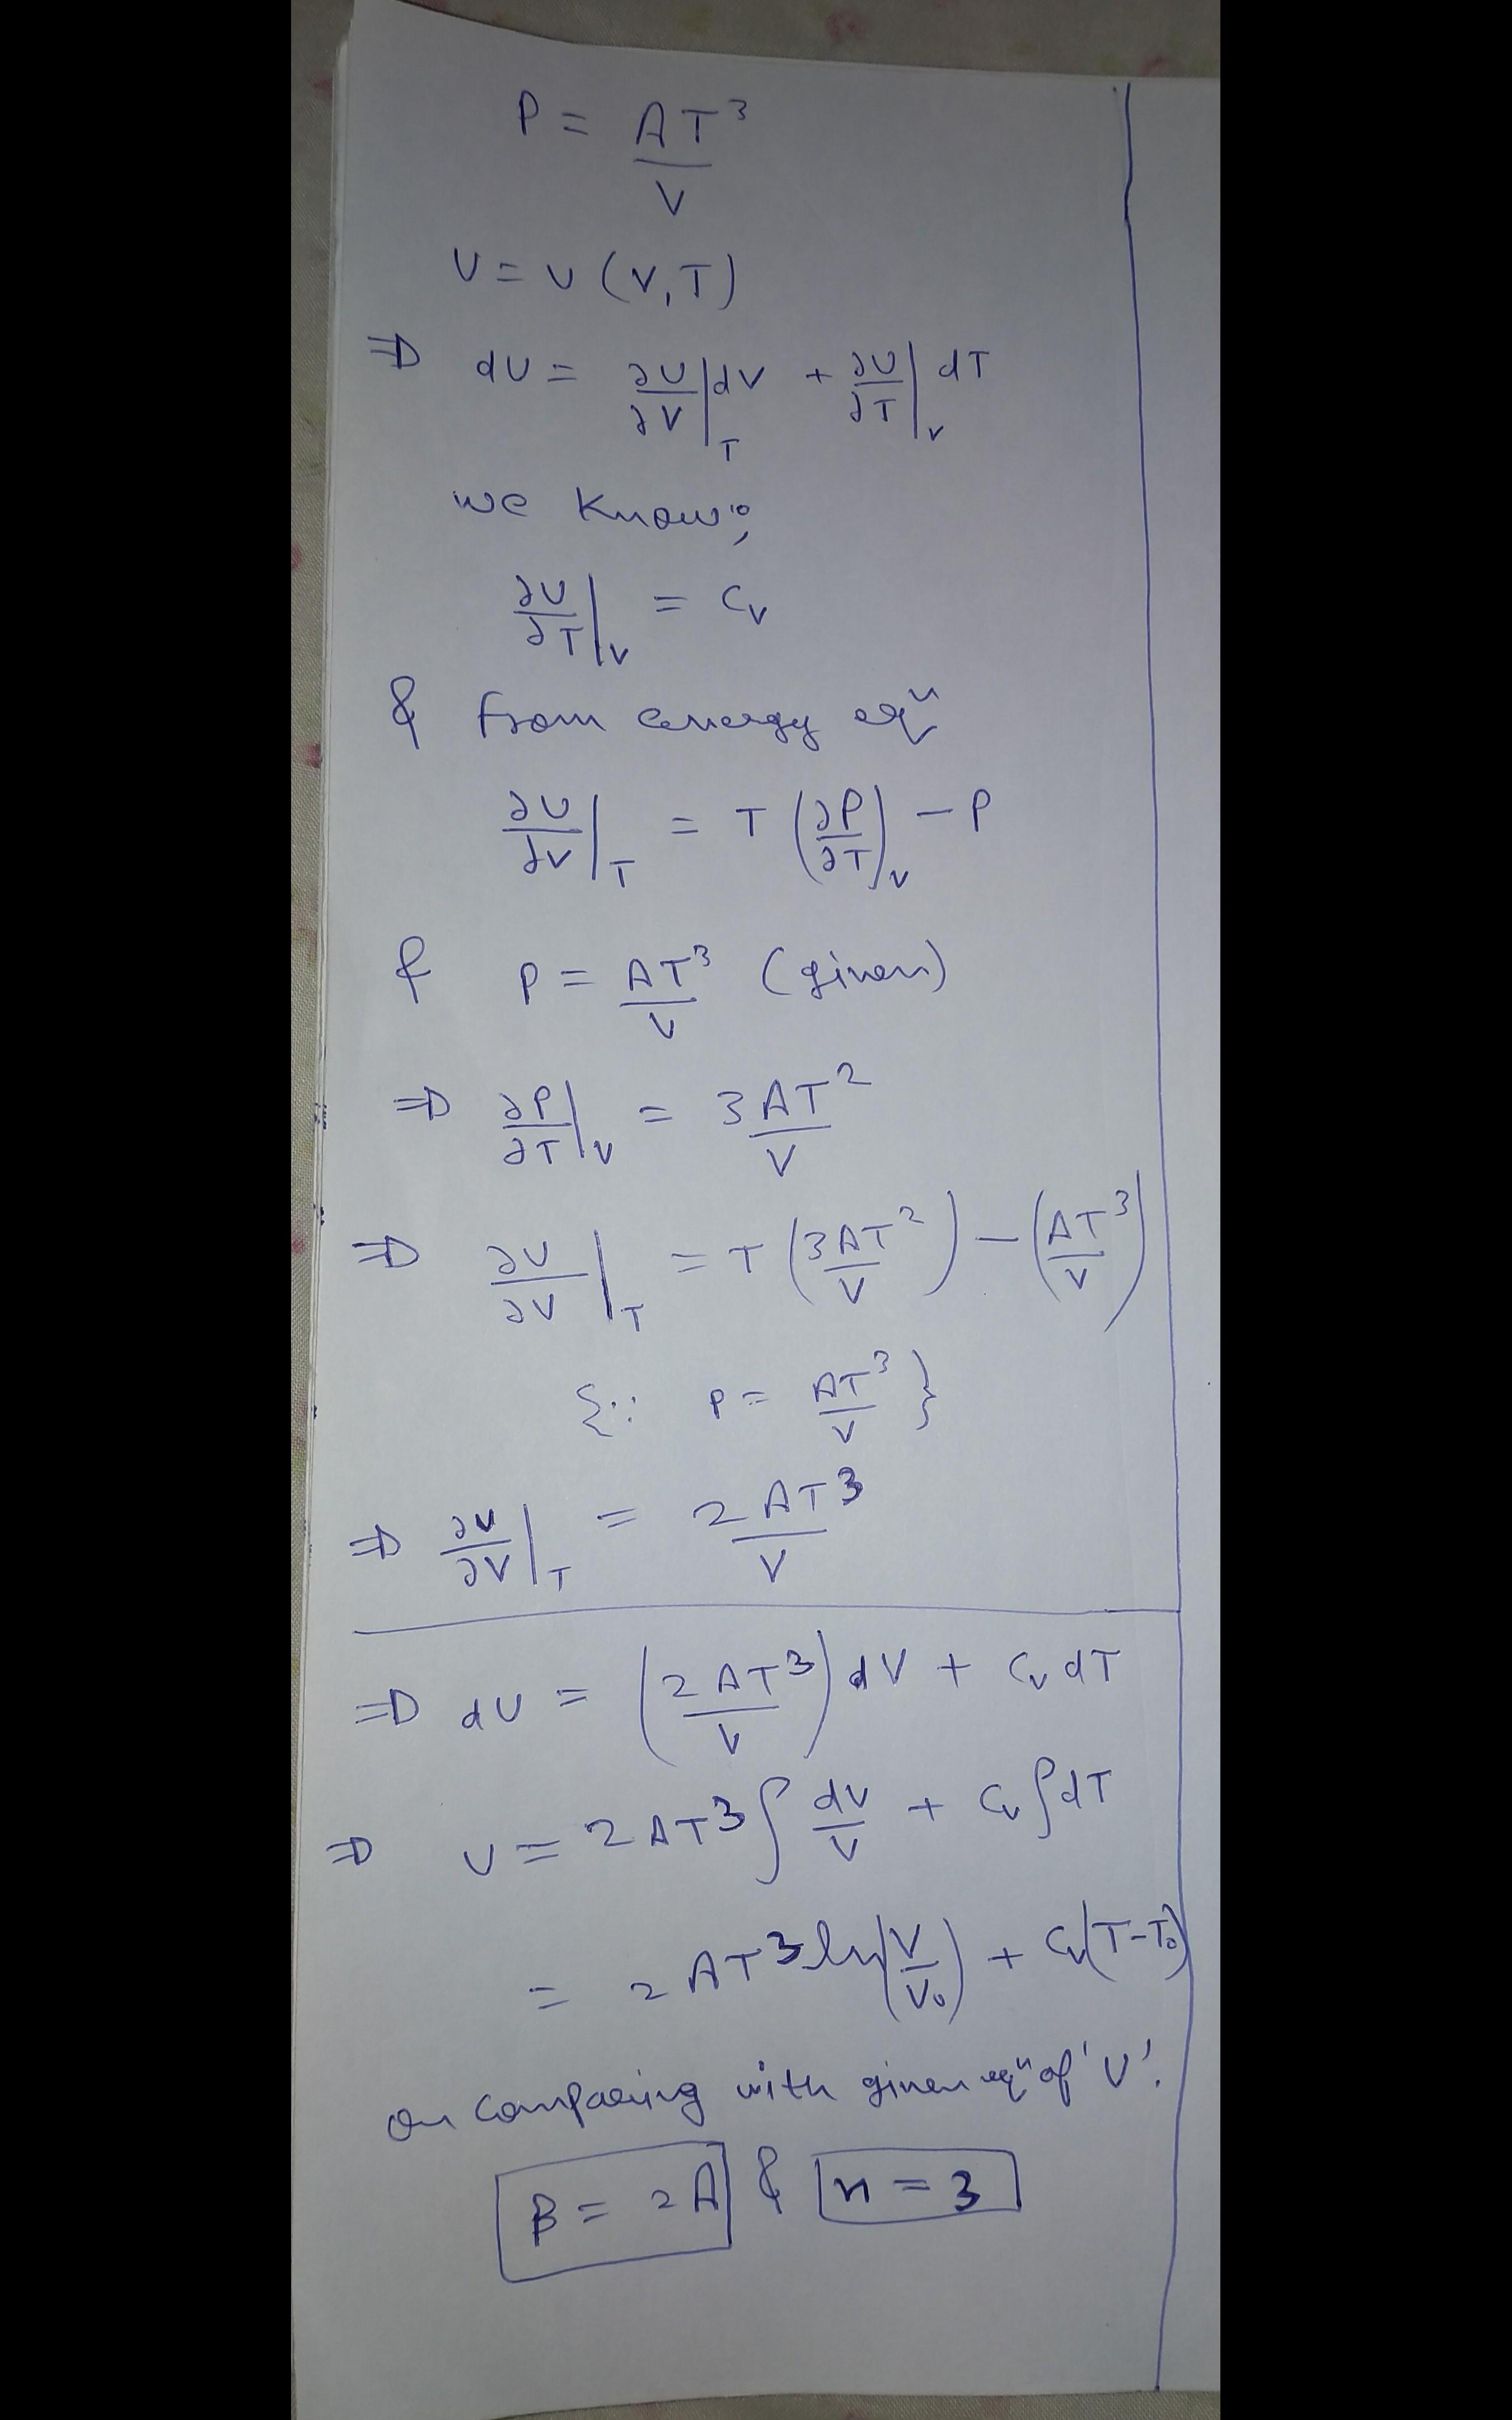 P = AT³/V
U = U (V,T)
⇒ dU = ∂U/∂V|_T dV + ∂U/∂T|_V dT
we know;
∂U/∂T|_V = C_V
& from energy eqⁿ
∂U/∂V|_T = T (∂P/∂T)_V - P
& P = AT³/V (given)
⇒ ∂P/∂T|_V = 3AT²/V
⇒ ∂U/∂V|_T = T (3AT²/V) - (AT³/V)
{∵ P = AT³/V}
⇒ ∂U/∂V|_T = 2AT³/V
⇒ dU = (2AT³/V) dV + C_V dT
⇒ U = 2AT³ ∫ dV/V + C_V ∫dT
= 2AT³ ln(V/V₀) + C_V(T-T₀)
on comparing with given eqⁿ of 'U'.
B = 2A & n = 3